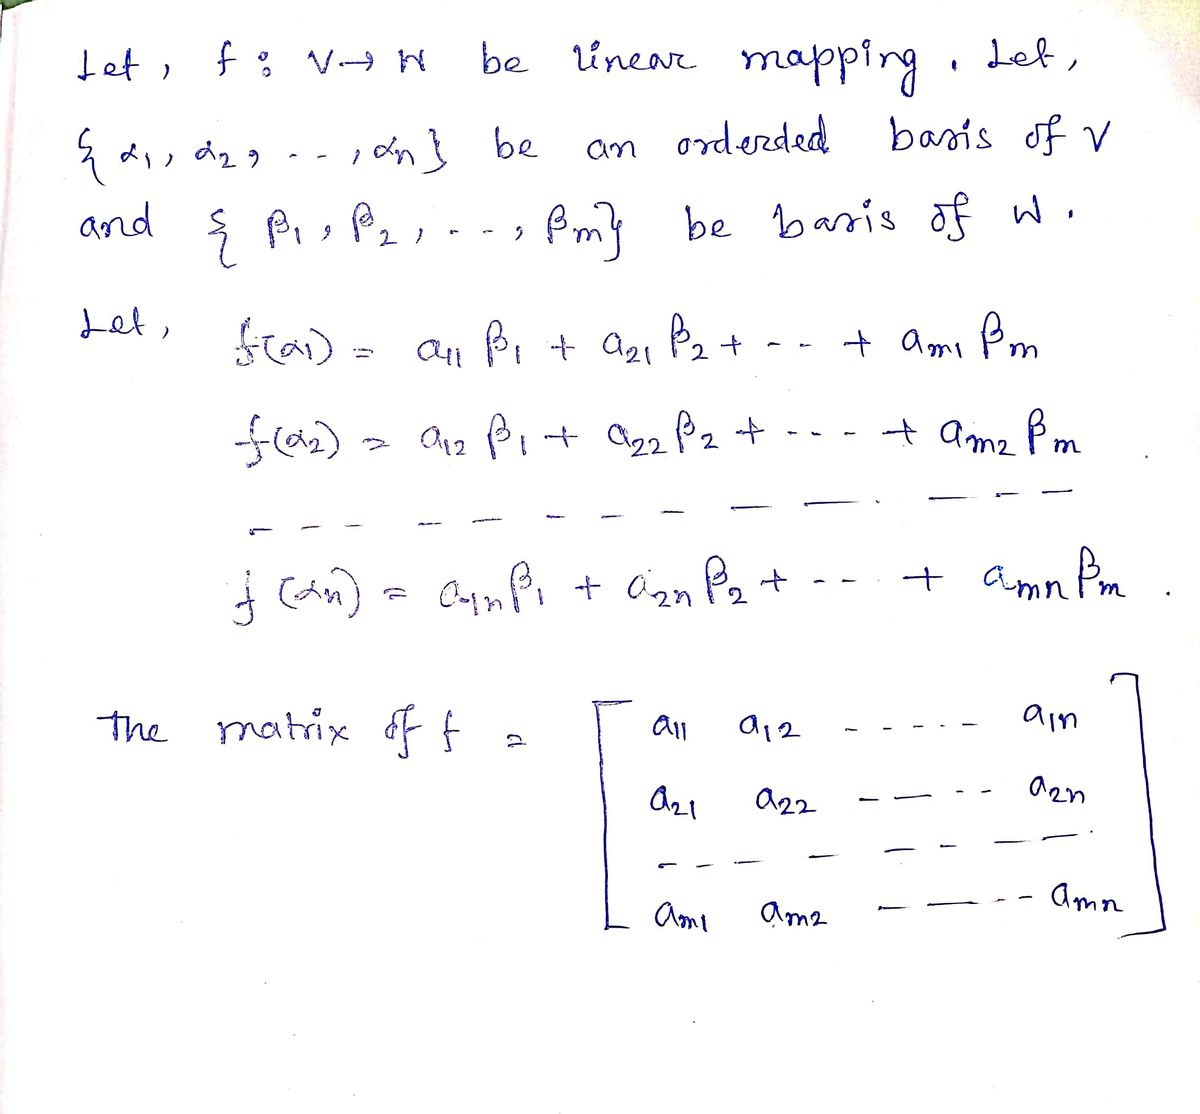 Let, f : V → W be linear mapping. Let,
{ α1, α2, - - , αn } be an orderded basis of V
and { β1, β2, - - - , βm } be basis of W.
Let, f(α1) = a11 β1 + a21 β2 + - - + am1 βm
f(α2) = a12 β1 + a22 β2 + - - - + am2 βm
- - - - - - - - - - - - - -
f(αn) = a1n β1 + a2n β2 + - - - + amn βm .
The matrix of f = [ a11 a12 - - - - - a1n
a21 a22 - - - - a2n
- - - - - - - - -
am1 am2 - - - - amn ]